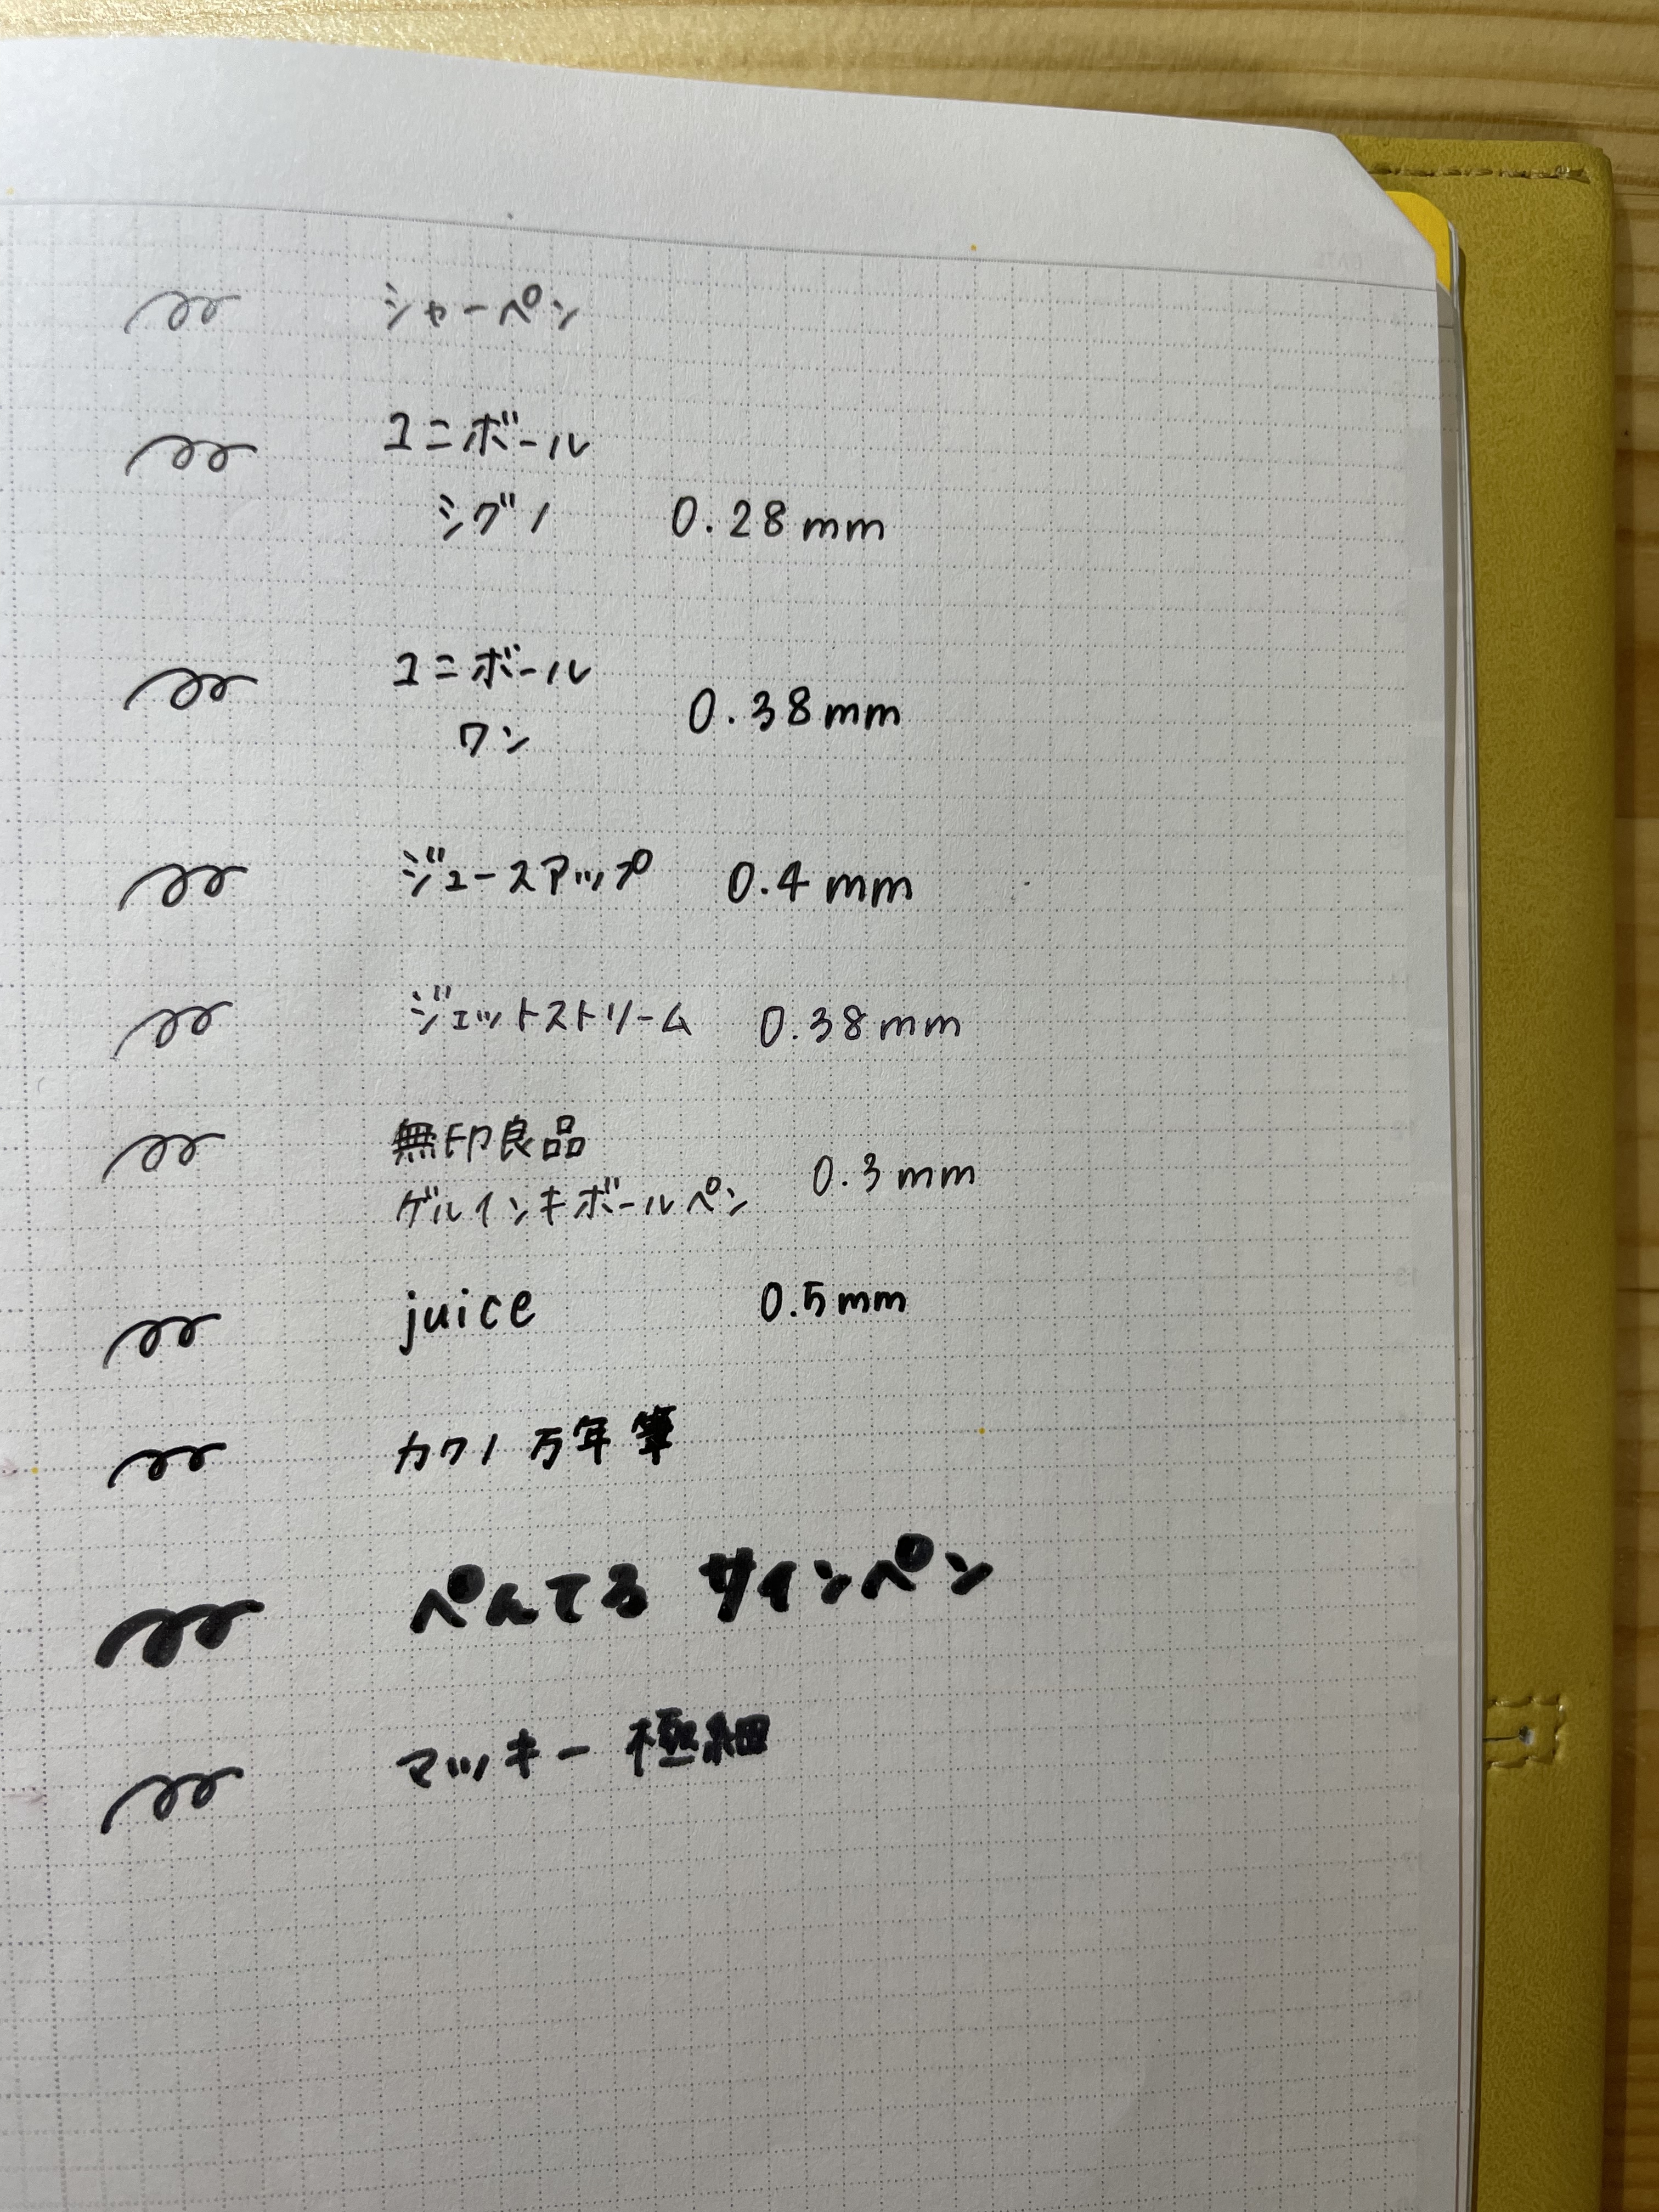 シャーペン
ユニボール
シグノ 0.28mm
ユニボール
ワン 0.38mm
ジュースアップ 0.4mm
ジェットストリーム 0.38mm
無印良品
ゲルインキボールペン 0.3mm
juice 0.5mm
カクノ 万年筆
ぺんてる サインペン
マッキー 極細